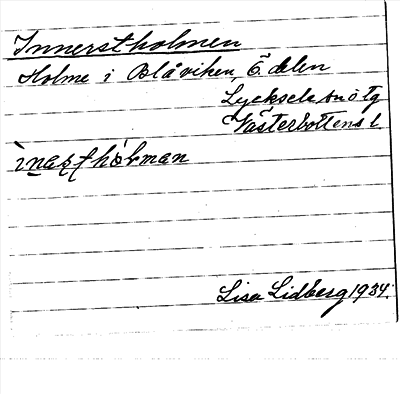 Innerstholmen
Holme i Blåviken, Ö. delen
Lycksele snö tg
Västerbottens l.
ìnəʂʈhòlman
Lisa Lidberg 1934.